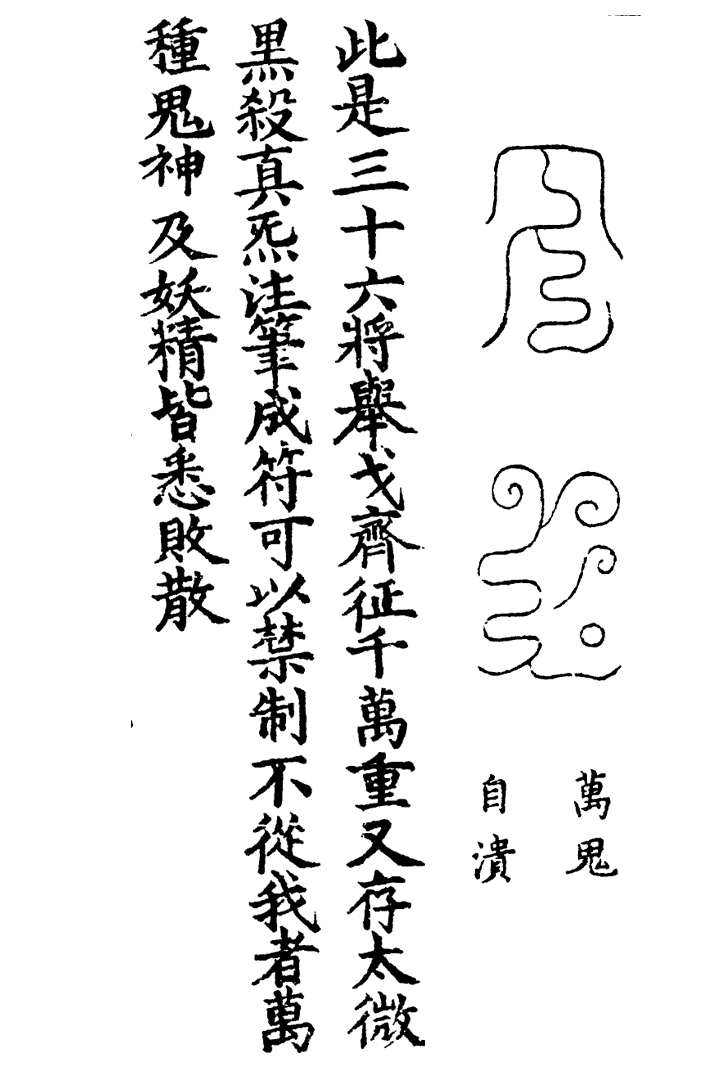 萬鬼
自潰
此是三十六將舉戈齊征千萬重又存太微
黑殺真炁注筆成符可以禁制不從我者萬
種鬼神及妖精皆悉敗散